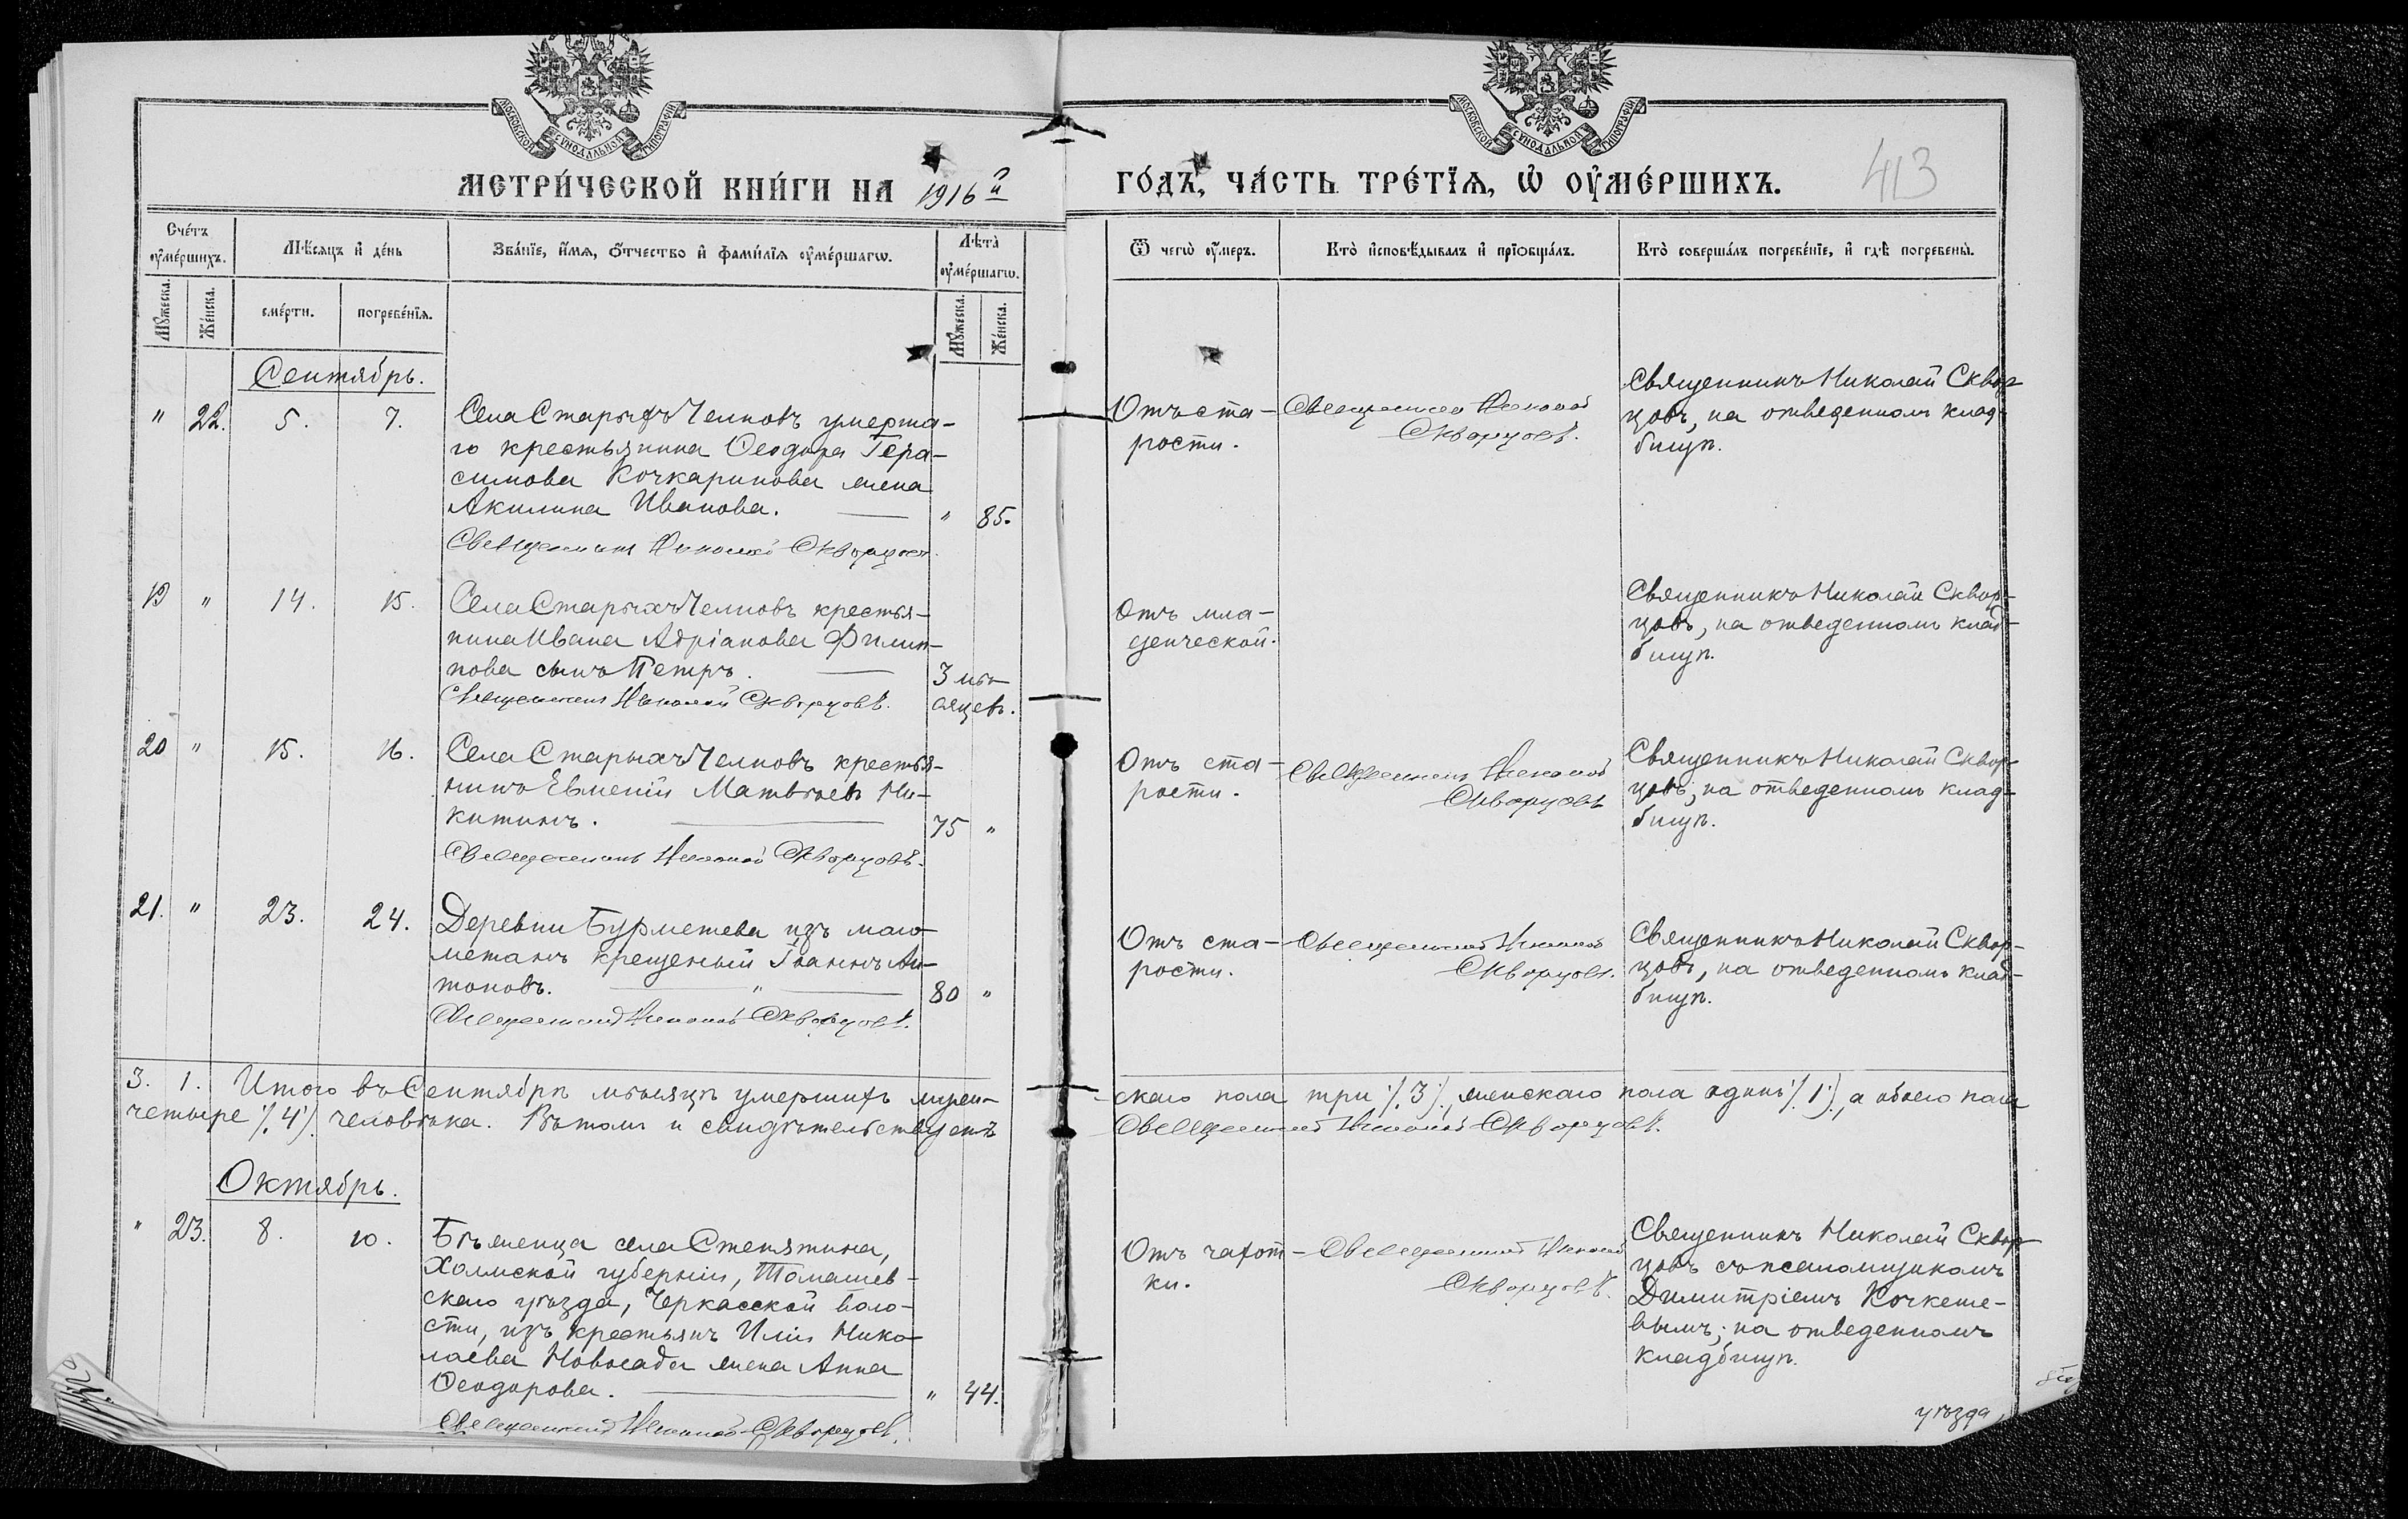 МОСКОВСКОЙ СѴНОДАЛЬНОЙ ТИПОГРАФІИ
МОСКОВСКОЙ СѴНОДАЛЬНОЙ ТИПОГРАФІИ
МЕТРИ́ЧЕСКОЙ КНИ́ГИ НА 1916й
ГО́ДЪ, ЧА́СТЬ ТРЕ́ТІѦ, Ѡ҆ ОУ҆МЕ́РШИХЪ.
413
Сче́тъ оу҆ме́ршихъ.
Мѣ́сяцъ и҆ де́нь
Зва́нїе, и҆́мѧ, ѻ҆́тчество и҆ фами́лїѧ оу҆ме́ршагѡ.
Лѣта̀ оу҆ме́ршагѡ.
Ѿ чегѡ̀ оу҆́меръ.
Кто̀ и҆сповѣ́дывалъ и҆ прїѡбща́лъ.
Кто̀ соверша́лъ погребе́нїе, и҆ гдѣ̀ погребены̀.
Мꙋ́жеска.
Же́нска.
сме́рти.
погребе́нїѧ.
Мꙋ́жеска.
Же́нска.
Сентябрь.
" 22. 5. 7.
Села Старыхъ Челновъ умерша-
го крестьянина Ѳеодора Гера-
симова Кочкаринова жена
Акилина Иванова. " 85.
Священникъ Николай Скворцовъ.
Отъ ста-
рости.
Священникъ Николай
Скворцовъ.
Священникъ Николай Сквор-
цовъ, на отведенномъ клад-
бищѣ.
19 " 14. 15.
Села Старыхъ Челновъ крестья-
нина Ивана Адріанова Филип-
пова сынъ Петръ. 3 мѣ-
сяцевъ.
Священникъ Николай Скворцовъ.
Отъ мла-
денческой.
Священникъ Николай Сквор-
цовъ, на отведенномъ клад-
бищѣ.
20 " 15. 16.
Села Старыхъ Челновъ крестья-
нинъ Евменій Матвѣевъ Ни-
китинъ. 75 "
Священникъ Николай Скворцовъ.
Отъ ста-
рости.
Священникъ Николай
Скворцовъ
Священникъ Николай Сквор-
цовъ, на отведенномъ клад-
бищѣ.
21. " 23. 24.
Деревни Бурметева изъ маго-
метанъ крещеный Іоаннъ Ан-
тоновъ. " 80 "
Священникъ Николай Скворцовъ.
Отъ ста-
рости.
Священникъ Николай
Скворцовъ.
Священникъ Николай Сквор-
цовъ, на отведенномъ клад-
бищѣ.
3. 1. Итого въ Сентябрѣ мѣсяцѣ умершихъ муже-
скаго пола три /.3/., женскаго пола одинъ /.1/., а обоего пола
четыре /.4/. человѣка. Въ томъ и свидѣтельствуетъ
Священникъ Николай Скворцовъ.
Октябрь.
" 23. 8. 10.
Бѣженца села Стенятина,
Холмской губерніи, Томашев-
скаго уѣзда, Черкасской воло-
сти, изъ крестьянъ Иліи Нико-
лаева Новосада жена Анна
Ѳеодорова. " 44.
Священникъ Николай Скворцовъ.
Отъ чахот-
ки.
Священникъ Николай
Скворцовъ.
Священникъ Николай Сквор-
цовъ съ псаломщикомъ
Димитріемъ Кочкеше-
вымъ; на отведенномъ
кладбищѣ.
уѣзда,